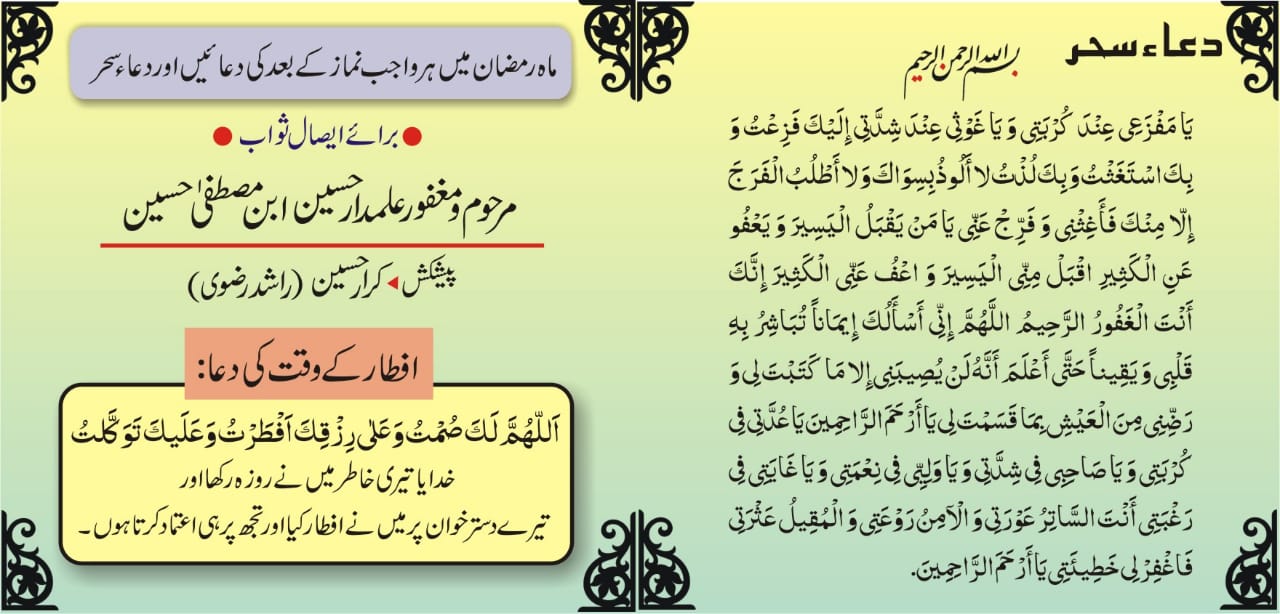 دعاء سحر
بسم اللہ الرحمن الرحیم
يَا مَفْزَعِي عِنْدَ كُرْبَتِي وَ يَا غَوْثِي عِنْدَ شِدَّتِي إِلَيْكَ فَزِعْتُ وَ
بِكَ اسْتَغَثْتُ وَ بِكَ لُذْتُ لا أَلُوذُ بِسِوَاكَ وَ لا أَطْلُبُ الْفَرَجَ
إِلّا مِنْكَ فَأَغِثْنِي وَ فَرِّجْ عَنِّي يَا مَنْ يَقْبَلُ الْيَسِيرَ وَ يَعْفُو
عَنِ الْكَثِيرِ اقْبَلْ مِنِّي الْيَسِيرَ وَ اعْفُ عَنِّي الْكَثِيرَ إِنَّكَ
أَنْتَ الْغَفُورُ الرَّحِيمُ اللَّهُمَّ إِنِّي أَسْأَلُكَ إِيمَاناً تُبَاشِرُ بِهِ
قَلْبِي وَ يَقِيناً حَتَّى أَعْلَمَ أَنَّهُ لَنْ يُصِيبَنِي إِلا مَا كَتَبْتَ لِي وَ
رَضِّنِي مِنَ الْعَيْشِ بِمَا قَسَمْتَ لِي يَا أَرْحَمَ الرَّاحِمِينَ يَا عُدَّتِي فِي
كُرْبَتِي وَ يَا صَاحِبِي فِي شِدَّتِي وَ يَا وَلِيِّي فِي نِعْمَتِي وَ يَا غَايَتِي فِي
رَغْبَتِي أَنْتَ السَّاتِرُ عَوْرَتِي وَ الْآمِنُ رَوْعَتِي وَ الْمُقِيلُ عَثْرَتِي
فَاغْفِرْ لِي خَطِيئَتِي يَا أَرْحَمَ الرَّاحِمِينَ.
ماہ رمضان میں ہر واجب نماز کے بعد کی دعائیں اور دعاء سحر
● برائے ایصال ثواب ●
مرحوم و مغفور علمدار حسین ابن مصطفیٰ حسین
پیشکش ◂ کرار حسین (راشد رضوی)
افطار کے وقت کی دعا:
اَللّٰهُمَّ لَكَ صُمْتُ وَ عَلٰى رِزْقِكَ اَفْطَرْتُ وَ عَلَيكَ تَوَكَّلتُ
خدایا تیری خاطر میں نے روزہ رکھا اور
تیرے دستر خوان پر میں نے افطار کیا اور تجھ پر ہی اعتماد کرتا ہوں۔